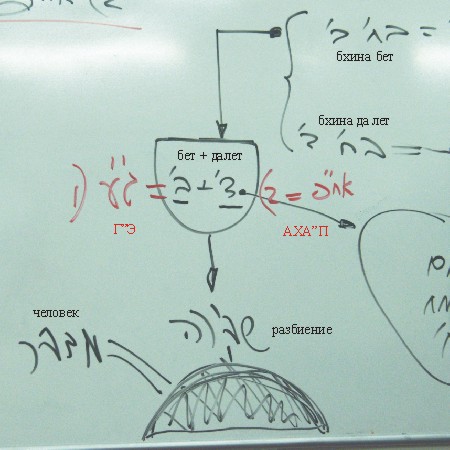 בחי' ב' =
бхина бет
бхина далет
בחי' ד' =
бет + далет
(1 ג"ע = ב' + ד' (2 = אח"פ
Г”Э АХА”П
человек
שבירה разбиение
מדבר